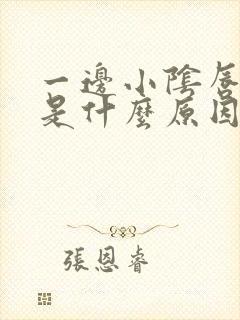 一邊小陰唇
是什麼原因
張恩睿